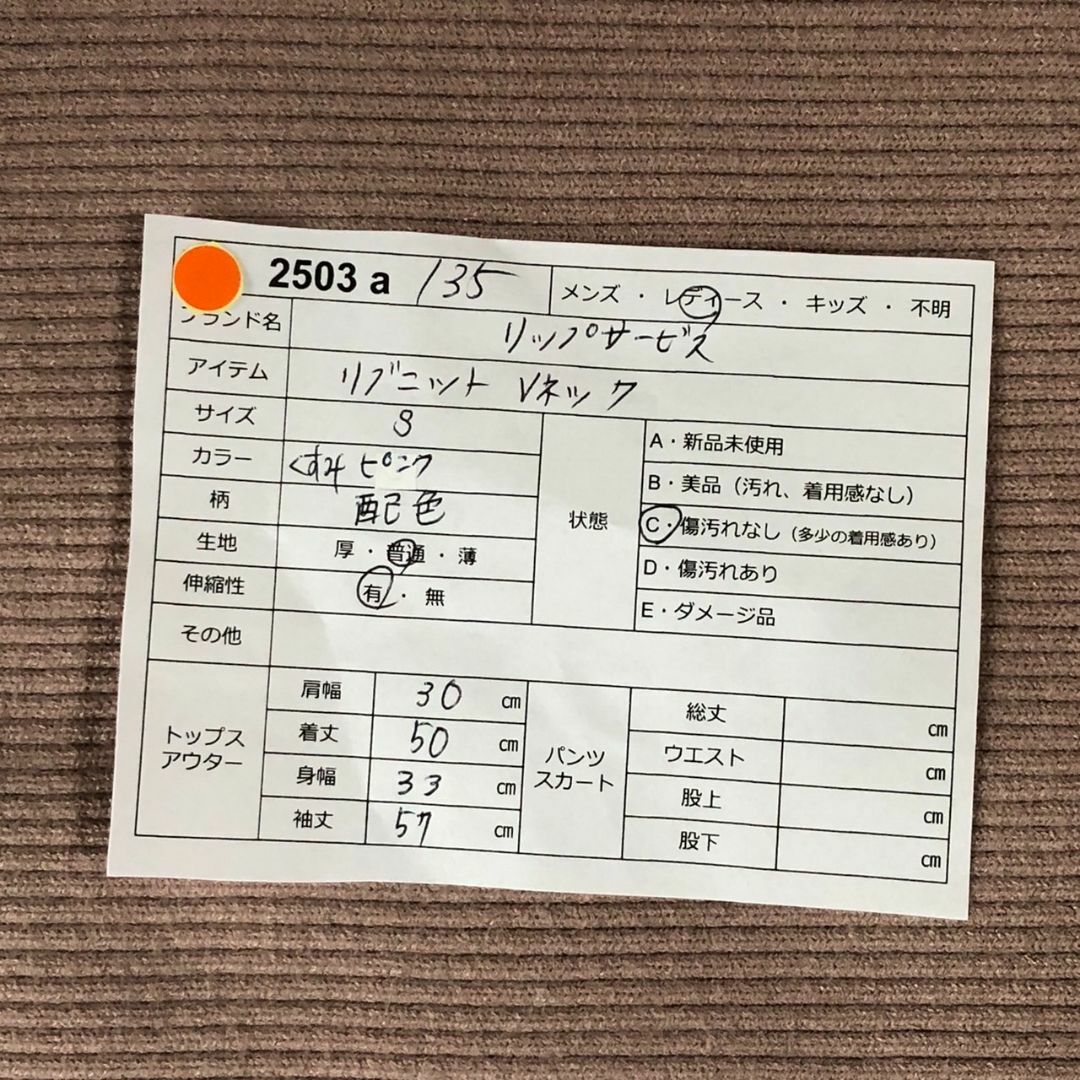 2503 a 135 メンズ ・ レディース ・ キッズ ・ 不明
ブランド名 リップサービス
アイテム リブニット Vネック
サイズ S
カラー くすみ ピンク
柄 配色
生地 厚 ・ 普通 ・ 薄
伸縮性 有 ・ 無
状態
A・新品未使用
B・美品（汚れ、着用感なし）
C・傷汚れなし（多少の着用感あり）
D・傷汚れあり
E・ダメージ品
その他
トップス
アウター
肩幅 30 ㎝
着丈 50 ㎝
身幅 33 ㎝
袖丈 57 ㎝
パンツ
スカート
総丈 ㎝
ウエスト ㎝
股上 ㎝
股下 ㎝